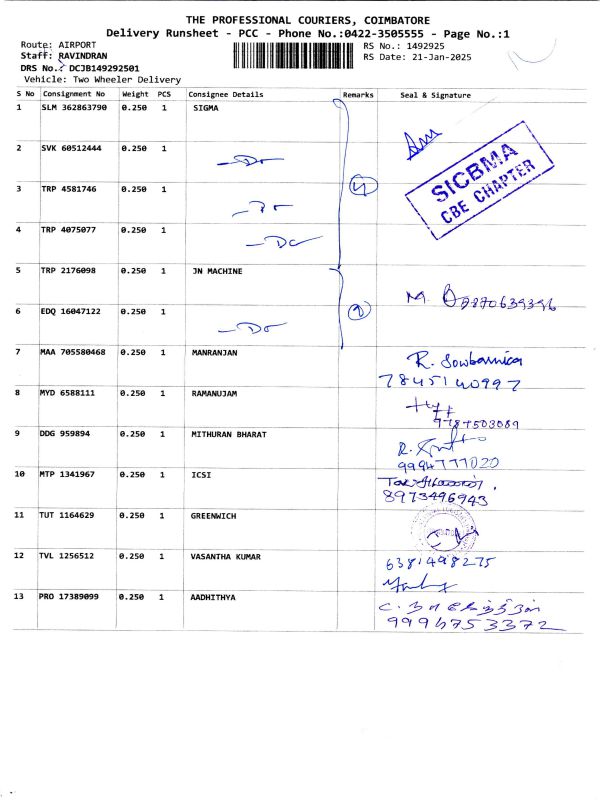 THE PROFESSIONAL COURIERS, COIMBATORE
Delivery Runsheet - PCC - Phone No.:0422-3505555 - Page No.:1
Route: AIRPORT
RS No.: 1492925
Staff: RAVINDRAN
RS Date: 21-Jan-2025
DRS No.: DCJB149292501
Vehicle: Two Wheeler Delivery
S No Consignment No Weight PCS Consignee Details Remarks Seal & Signature
1 SLM 362863790 0.250 1 SIGMA
SICBMA
CBE CHAPTER
2 SVK 60512444 0.250 1 -Do-
3 TRP 4581746 0.250 1 -Do-
4 TRP 4075077 0.250 1 -Do-
4
5 TRP 2176098 0.250 1 JN MACHINE
6 EDQ 16047122 0.250 1 -Do-
2
7 MAA 705580468 0.250 1 MANRANJAN R. Sowbarnica
7845140997
8 MYD 6588111 0.250 1 RAMANUJAM
9787503089
9 DDG 959894 0.250 1 MITHURAN BHARAT
9994777020
10 MTP 1341967 0.250 1 ICSI
8973496943
11 TUT 1164629 0.250 1 GREENWICH
12 TVL 1256512 0.250 1 VASANTHA KUMAR 6381498275
13 PRO 17389099 0.250 1 AADHITHYA
9994753372